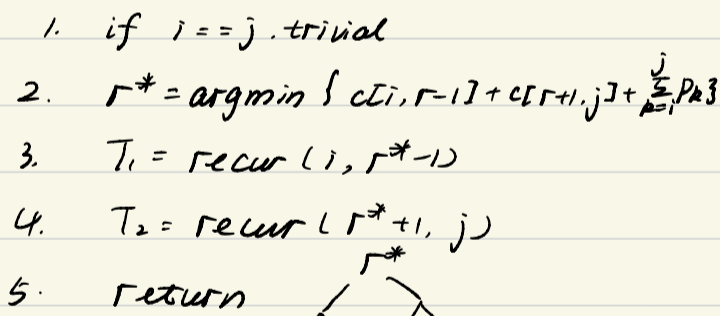 1. if i==j. trivial
2. r* = argmin { c[i, r-1] + c[r+1, j] + Σ_{k=i}^{j} Pk }
3. T₁ = recur (i, r*-1)
4. T₂ = recur ( r*+1, j )
r*
5. return